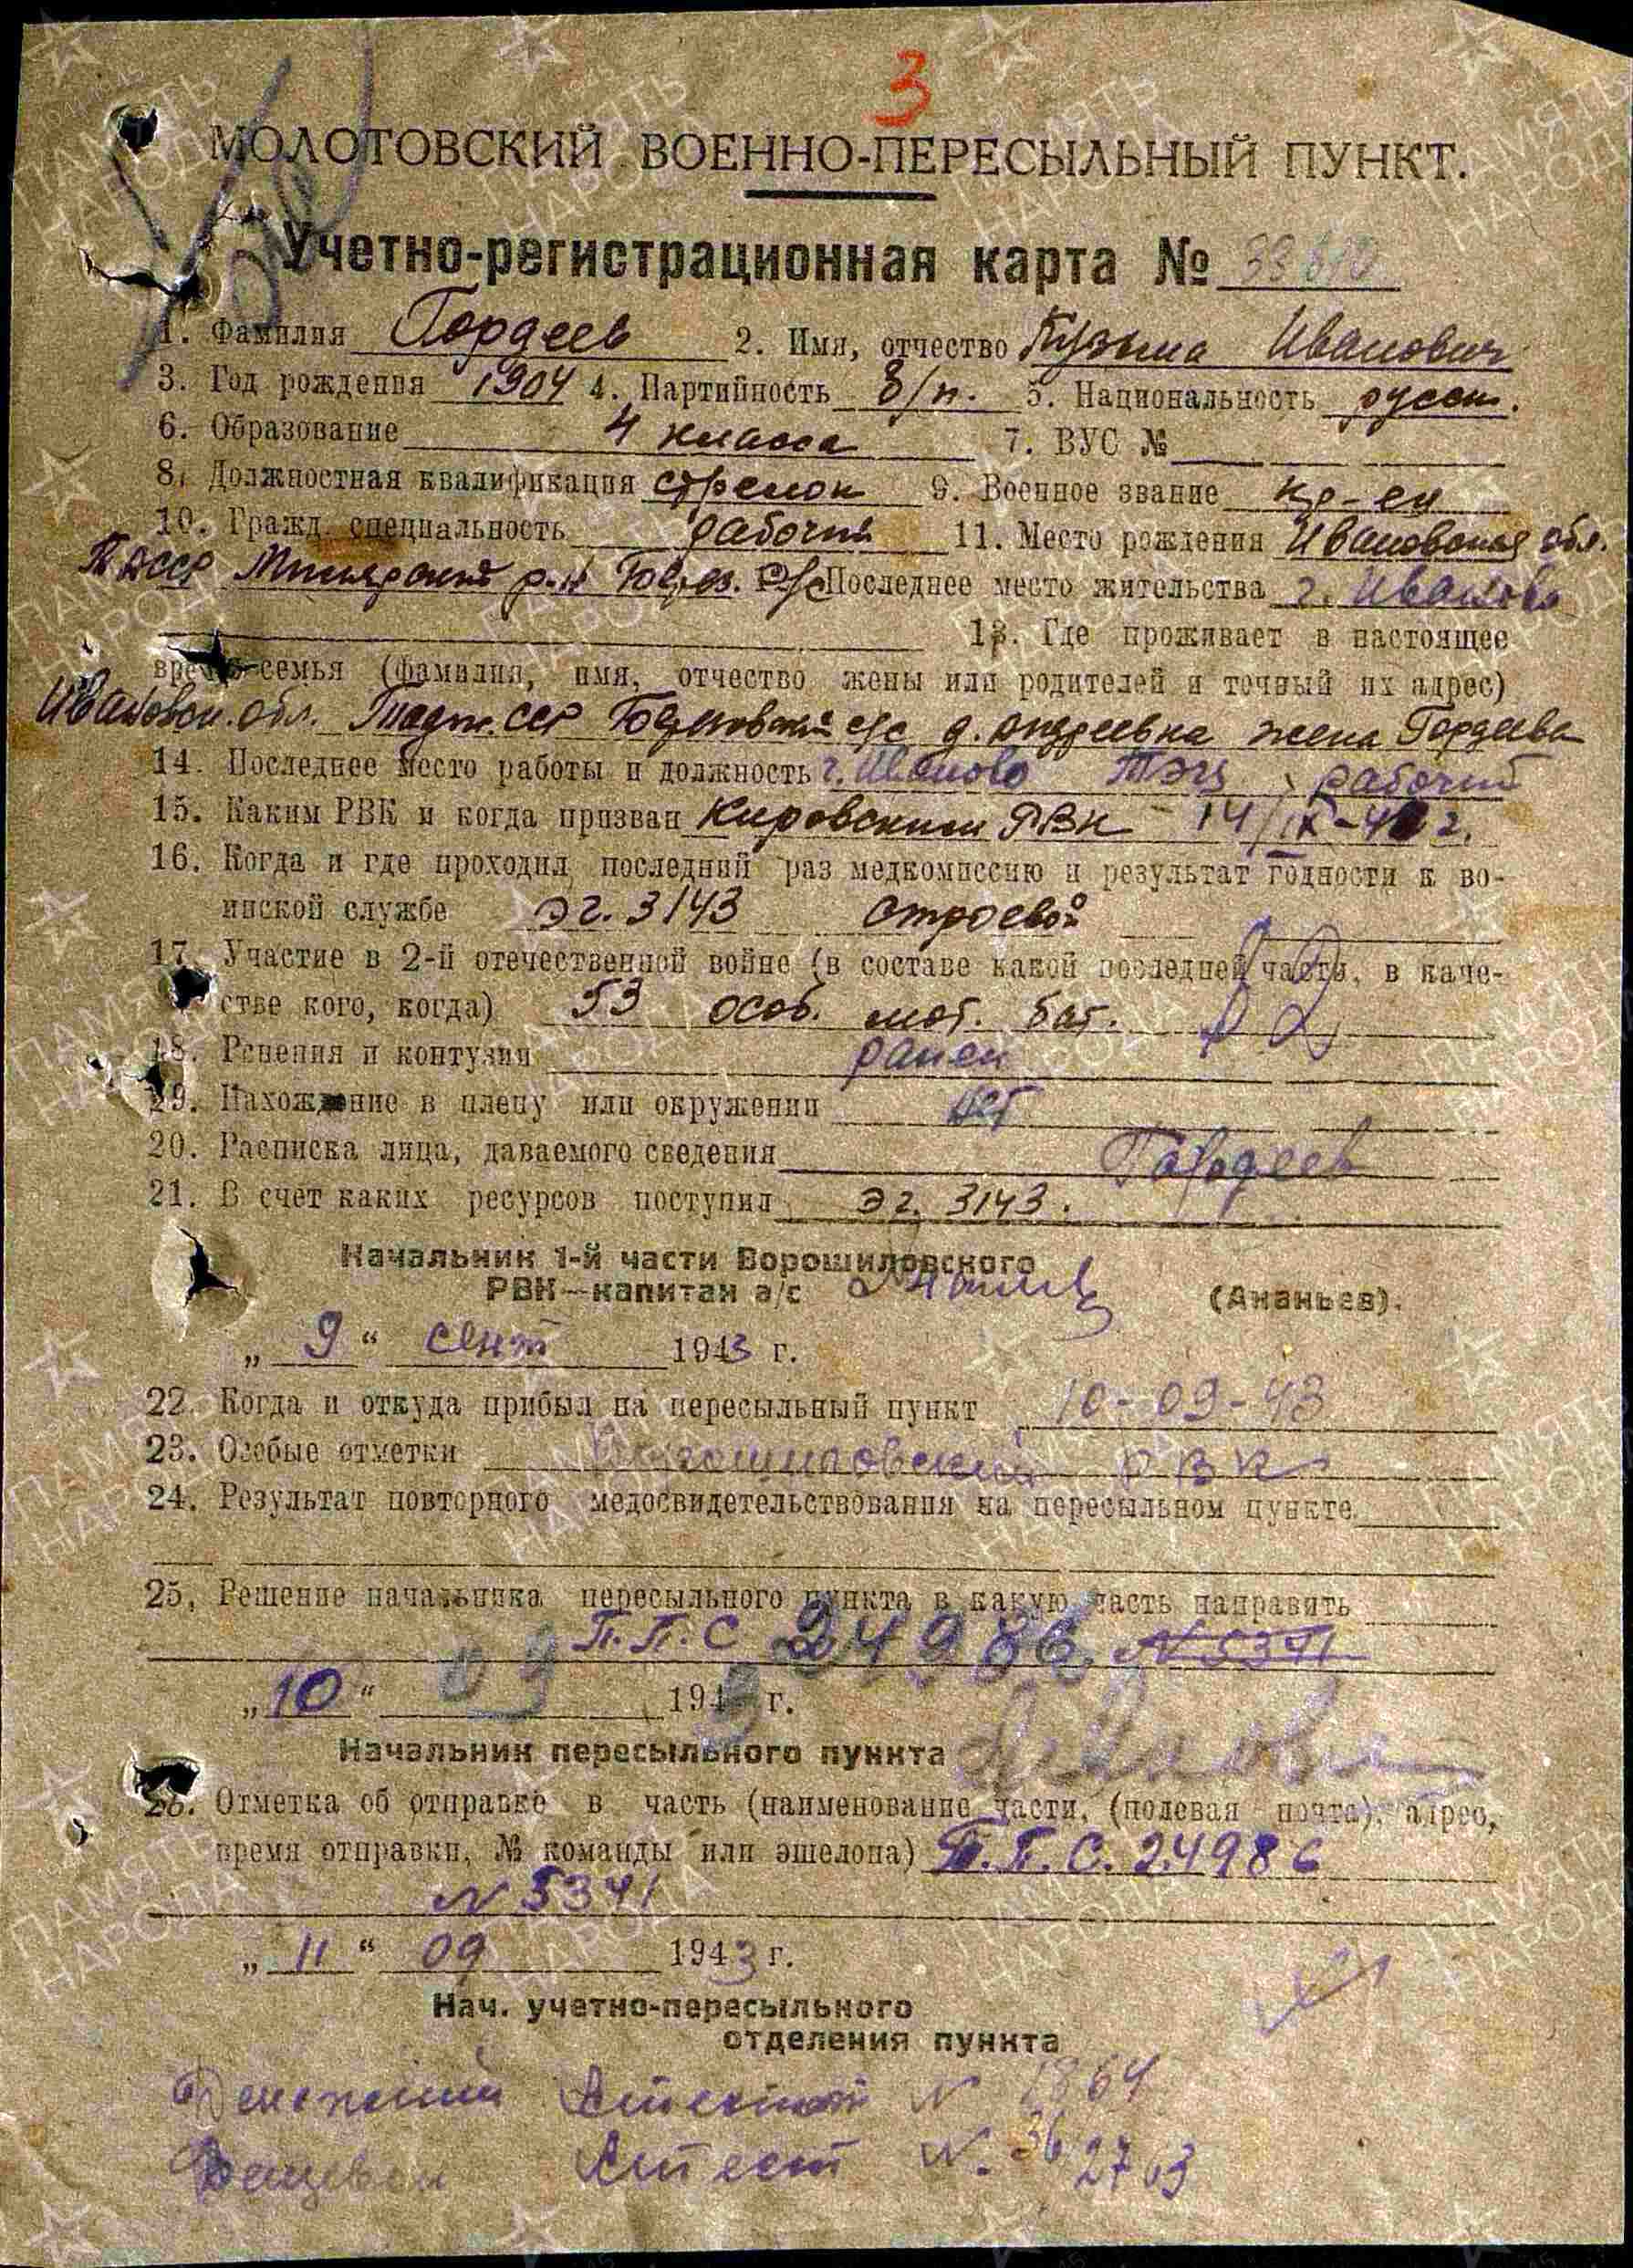 3
МОЛОТОВСКИЙ ВОЕННО-ПЕРЕСЫЛЬНЫЙ ПУНКТ.
Учетно-регистрационная карта №
1. Фамилия Гордеев 2. Имя, отчество Кузьма Иванович
3. Год рождения 1904 4. Партийность б/п. 5. Национальность русск.
6. Образование 4 класса 7. ВУС №
8. Должностная квалификация стрелок 9. Военное звание кр-ец
10. Гражд. специальность рабочий 11. Место рождения Ивановская обл.
р-н с/с Последнее место жительства г. Иваново
13. Где проживает в настоящее
время семья (фамилия, имя, отчество жены или родителей и точный их адрес)
Ивановск. обл. с/с д. Андреевка жена Гордеева
14. Последнее место работы и должность г. Иваново ТЭЦ рабочий
15. Каким РВК и когда призван Кировским РВК 14/IX-41 г.
16. Когда и где проходил последний раз медкомиссию и результат годности к во-
инской службе эг. 3143 строевой
17. Участие в 2-й отечественной войне (в составе какой последней части, в каче-
стве кого, когда) 53 особ. мот. бат.
18. Ранения и контузии ранен
19. Нахождение в плену или окружении нет
20. Расписка лица, даваемого сведения Гордеев
21. В счет каких ресурсов поступил эг. 3143.
Начальник 1-й части Ворошиловского
РВК—капитан а/с (Ананьев).
„ 9 “ сент 1943 г.
22. Когда и откуда прибыл на пересыльный пункт 10-09-43
23. Особые отметки Ворошиловский РВК
24. Результат повторного медосвидетельствования на пересыльном пункте
25, Решение начальника пересыльного пункта в какую часть направить
П.П.С 24986 N 5371
„ 10 “ 09 1943 г.
Начальник пересыльного пункта
26. Отметка об отправке в часть (наименование части, (полевая почта), адрес,
время отправки, № команды или эшелона) П.П.С. 24986
N 5371
„ 11 “ 09 1943 г.
Нач. учетно-пересыльного
отделения пункта
Денежный Аттестат N 1864
Вещевой Аттестат N. 2763
ПАМЯТЬ НАРОДА